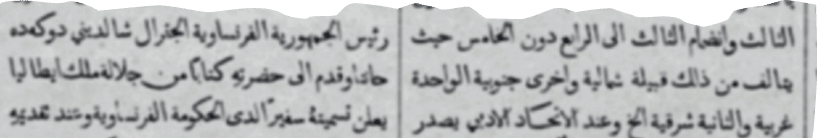 الثالث وانضمام الثالث الى الرابع دون الخامس حيث
يتالف من ذلك قبيلة شمالية واخرى جنوبية الواحدة
غربية والثانية شرقية الخ وعند الاتحاد الادبي يصدر
رئيس الجمهورية الفرنساوية الجنرال شالديني دوكه ده
جائتا وقدم الى حضرته كتابًا من جلالة ملك ايطاليا
يعلن تسميتهُ سفيرًا لدى الحكومة الفرنساوية وعند تقديمهِ